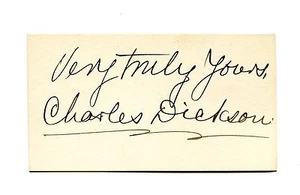 Very truly Yours,
Charles Dickson.